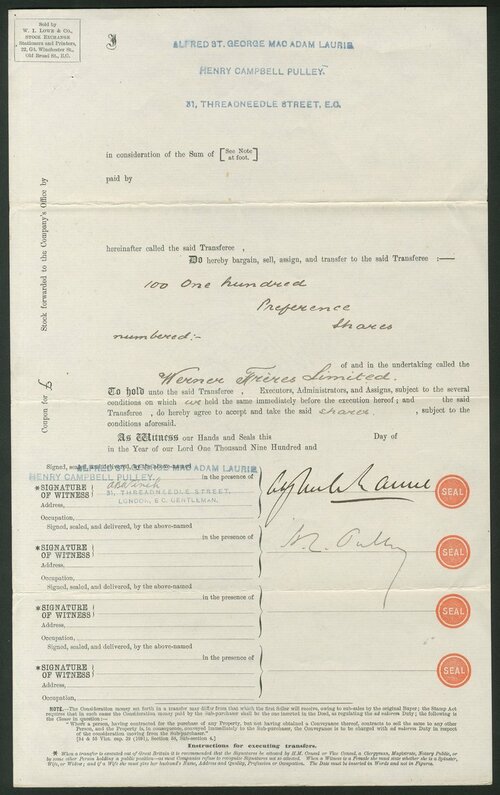 Sold by
W. I. LOWE & CO.,
STOCK EXCHANGE
Stationers and Printers,
22, Gt. Winchester St.,
Old Broad St., E.C.
I
ALFRED ST. GEORGE MAC ADAM LAURIE
HENRY CAMPBELL PULLEY.
31, THREADNEEDLE STREET, E.C.
in consideration of the Sum of [See Note at foot.]
paid by
hereinafter called the said Transferee ,
Do hereby bargain, sell, assign, and transfer to the said Transferee :—
100 One hundred
Preference
Shares
numbered:-
of and in the undertaking called the
Werner Frères Limited.
To hold unto the said Transferee , Executors, Administrators, and Assigns, subject to the several
conditions on which we held the same immediately before the execution hereof ; and the said
Transferee , do hereby agree to accept and take the said shares. , subject to the
conditions aforesaid.
As Witness our Hands and Seals this Day of
in the Year of our Lord One Thousand Nine Hundred and
Stock forwarded to the Company's Office by
Coupon for £
Signed, sealed, and delivered, by the above-named
ALFRED ST. GEORGE MAC ADAM LAURIE
HENRY CAMPBELL PULLEY. in the presence of
*SIGNATURE
OF WITNESS
31, THREADNEEDLE STREET,
LONDON, E.C. GENTLEMAN.
Address,
Occupation,
SEAL
Signed, sealed, and delivered, by the above-named
in the presence of
*SIGNATURE
OF WITNESS
H. C. Pulley
SEAL
Address,
Occupation,
Signed, sealed, and delivered, by the above-named
in the presence of
*SIGNATURE
OF WITNESS
SEAL
Address,
Occupation,
Signed, sealed, and delivered, by the above-named
in the presence of
*SIGNATURE
OF WITNESS
SEAL
Address,
Occupation,
NOTE.—The Consideration money set forth in a transfer may differ from that which the first Seller will receive, owing to sub-sales by the original Buyer; the Stamp Act
requires that in such cases the Consideration money paid by the Sub-purchaser shall be the one inserted in the Deed, as regulating the ad valorem Duty; the following is
the Clause in question :—
"Where a person, having contracted for the purchase of any Property, but not having obtained a Conveyance thereof, contracts to sell the same to any other
Person, and the Property is, in consequence, conveyed immediately to the Sub-purchaser, the Conveyance is to be charged with ad valorem Duty in respect
of the consideration moving from the Sub-purchaser."
[54 & 55 Vict. cap. 39 (1891), Section 58, Sub-section 4.]
Instructions for executing transfers.
* When a transfer is executed out of Great Britain it is recommended that the Signatures be attested by H.M. Consul or Vice Consul, a Clergyman, Magistrate, Notary Public, or
by some other Person holding a public position—as most Companies refuse to recognise Signatures not so attested. When a Witness is a Female she must state whether she is a Spinster,
Wife, or Widow; and if a Wife she must give her husband's Name, Address and Quality, Profession or Occupation. The Date must be inserted in Words and not in Figures.